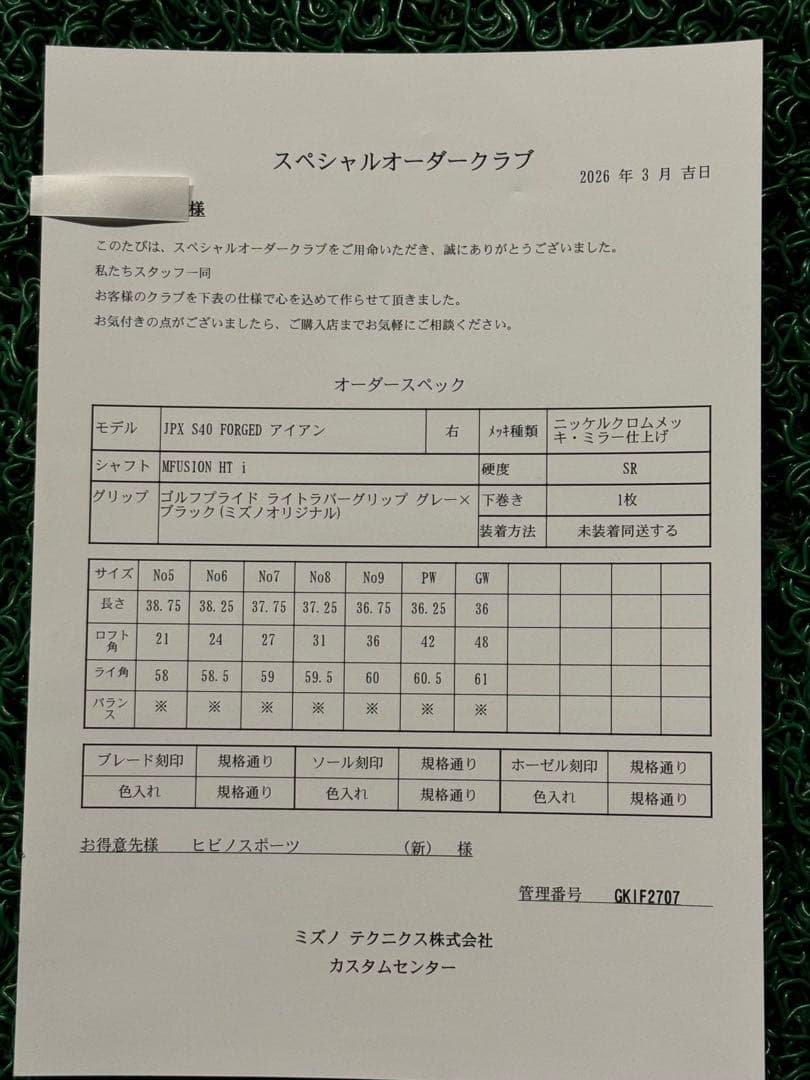 スペシャルオーダークラブ
2026 年 3 月 吉日
様
このたびは、スペシャルオーダークラブをご用命いただき、誠にありがとうございました。
私たちスタッフ一同
お客様のクラブを下表の仕様で心を込めて作らせて頂きました。
お気付きの点がございましたら、ご購入店までお気軽にご相談ください。
オーダースペック
モデル JPX S40 FORGED アイアン 右 ﾒｯｷ種類 ニッケルクロムメッ
キ・ミラー仕上げ
シャフト MFUSION HT i 硬度 SR
グリップ ゴルフプライド ライトラバーグリップ グレー× 下巻き 1枚
ブラック(ミズノオリジナル)
装着方法 未装着同送する
サイズ No5 No6 No7 No8 No9 PW GW
長さ 38.75 38.25 37.75 37.25 36.75 36.25 36
ロフト
角 21 24 27 31 36 42 48
ライ角 58 58.5 59 59.5 60 60.5 61
バラン
ス ※ ※ ※ ※ ※ ※ ※
ブレード刻印 規格通り ソール刻印 規格通り ホーゼル刻印 規格通り
色入れ 規格通り 色入れ 規格通り 色入れ 規格通り
お得意先様 ヒビノスポーツ (新) 様
管理番号 GKIF2707
ミズノ テクニクス株式会社
カスタムセンター